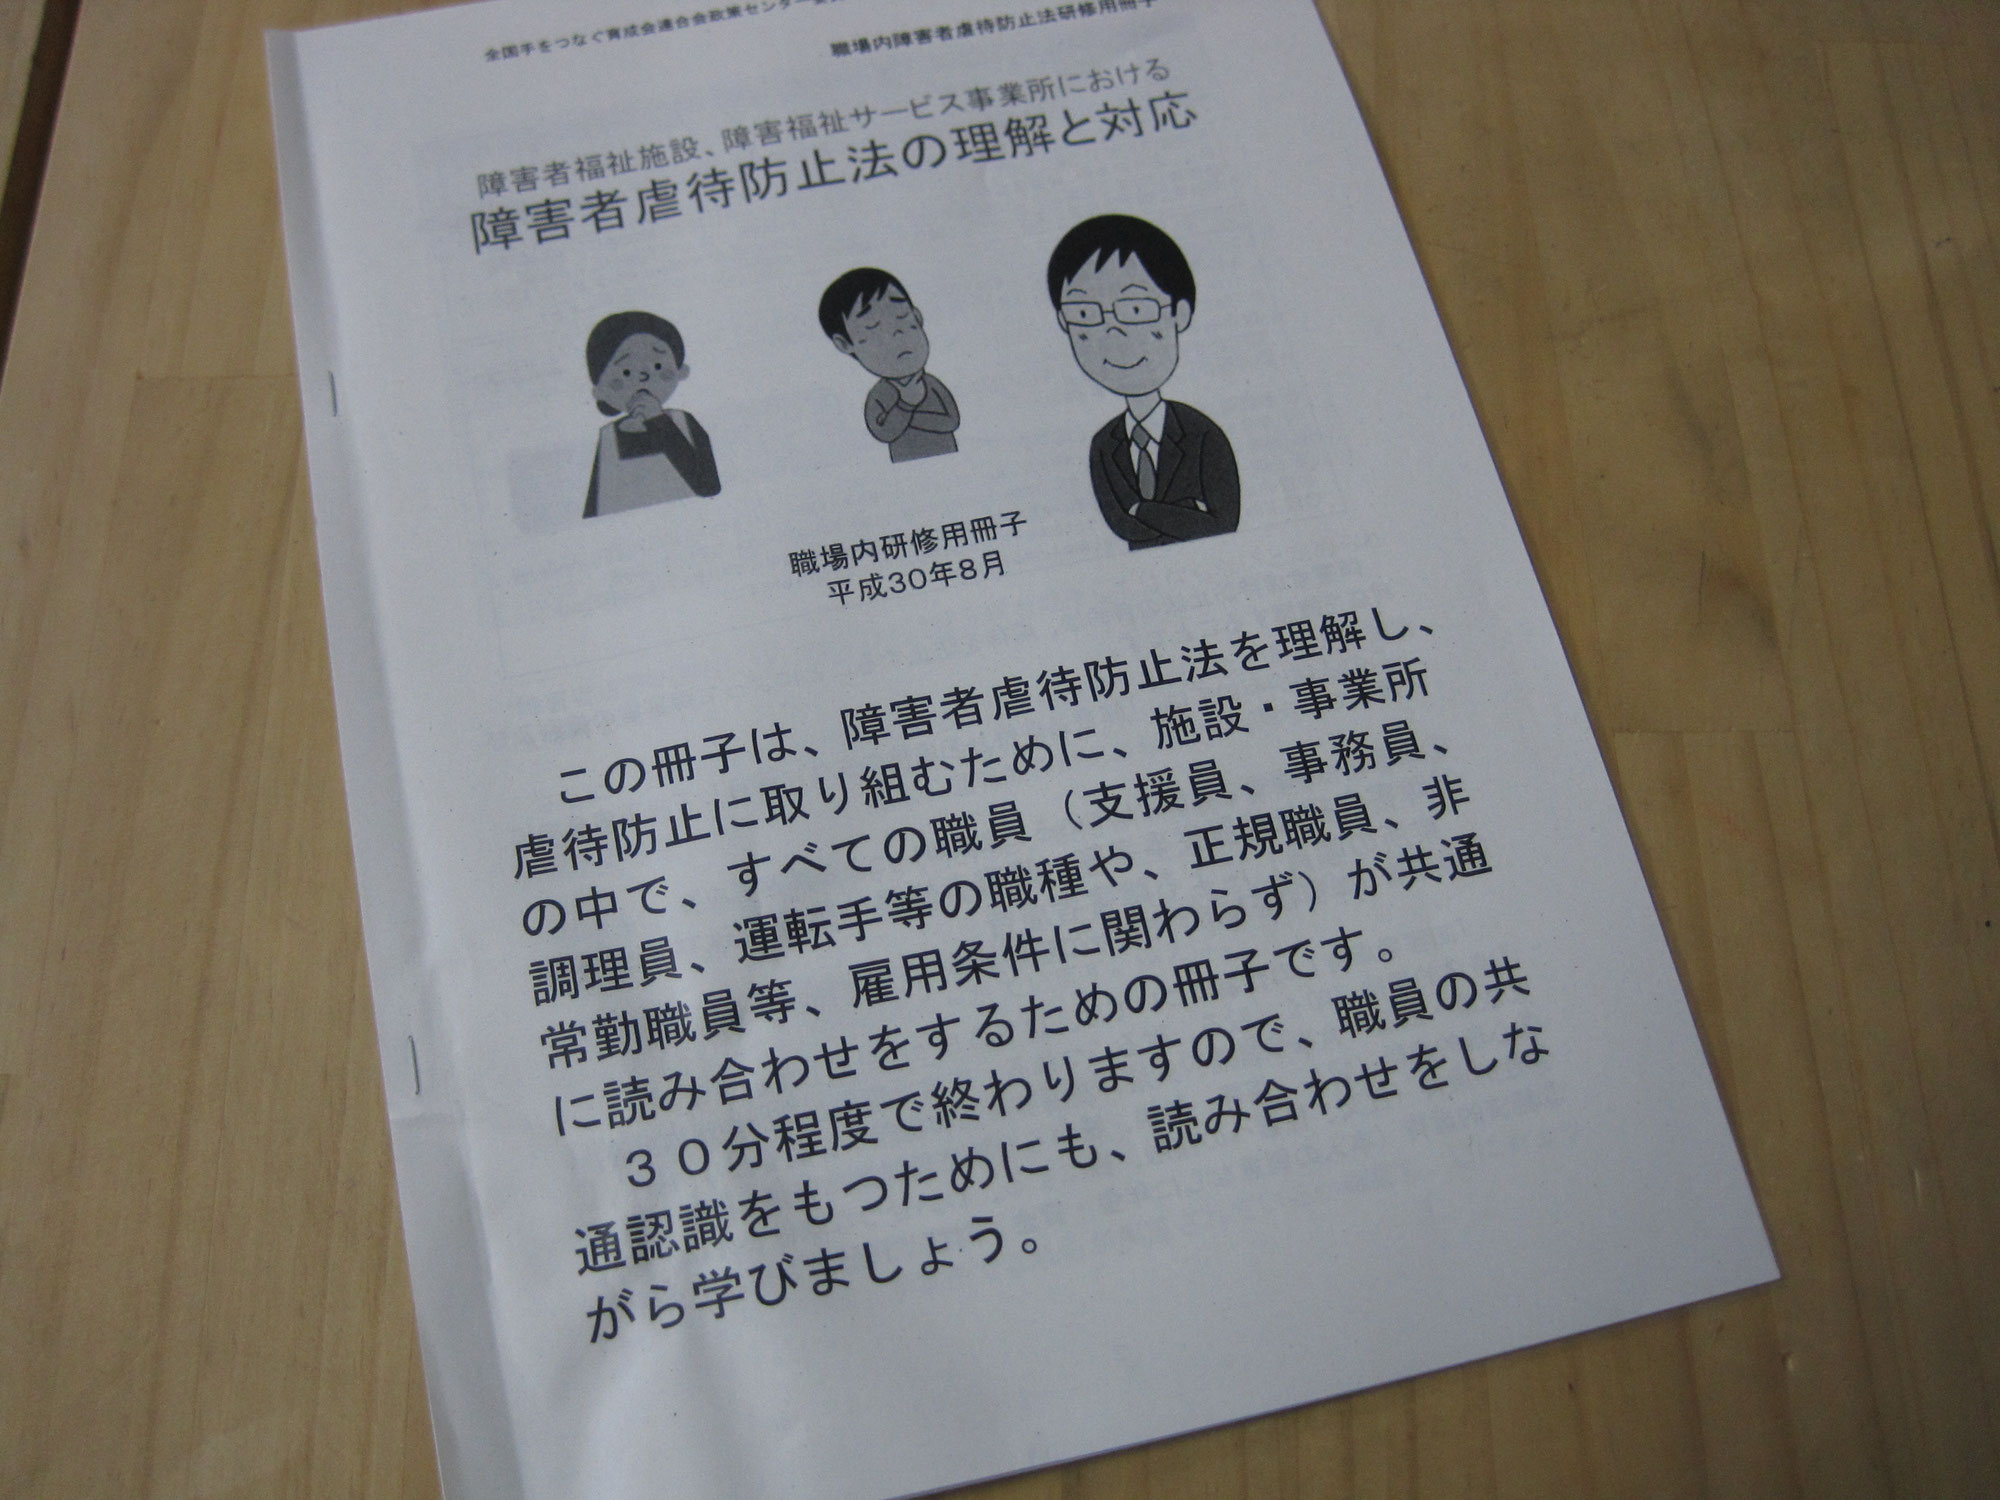 全国手をつなぐ育成会連合会政策センター委員
職場内障害者虐待防止法研修用冊子
障害者福祉施設、障害福祉サービス事業所における
障害者虐待防止法の理解と対応
職場内研修用冊子
平成30年8月
この冊子は、障害者虐待防止法を理解し、
虐待防止に取り組むために、施設・事業所
の中で、すべての職員（支援員、事務員、
調理員、運転手等の職種や、正規職員、非
常勤職員等、雇用条件に関わらず）が共通
に読み合わせをするための冊子です。
３０分程度で終わりますので、職員の共
通認識をもつためにも、読み合わせをしな
がら学びましょう。